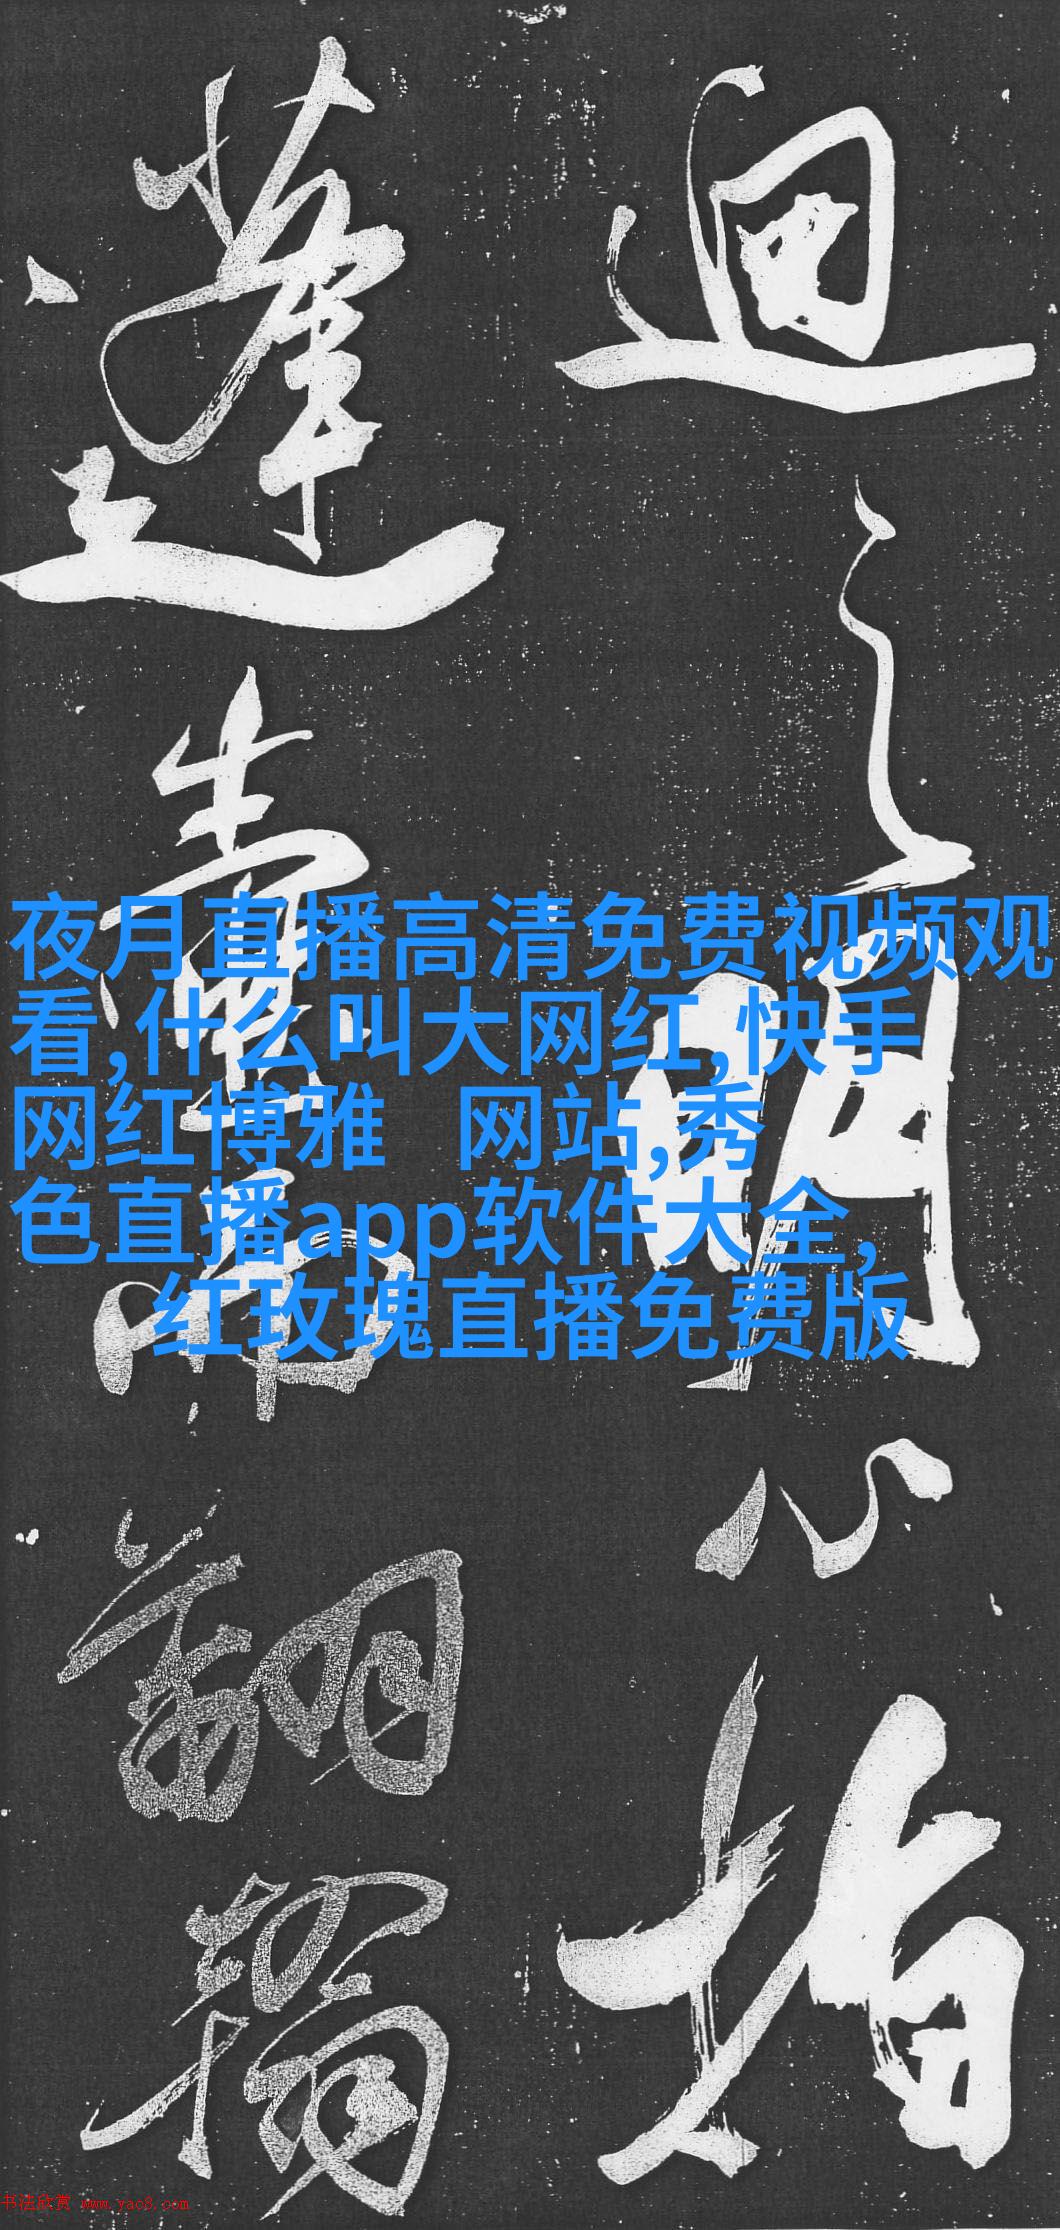 迴之明心指
蓬
翻
夜月直播高清免费视频观
看,什么叫大网红,快手
网红博雅 网站,秀
色直播app软件大全,
红玫瑰直播免费版
书法欣赏 www.yac8.com